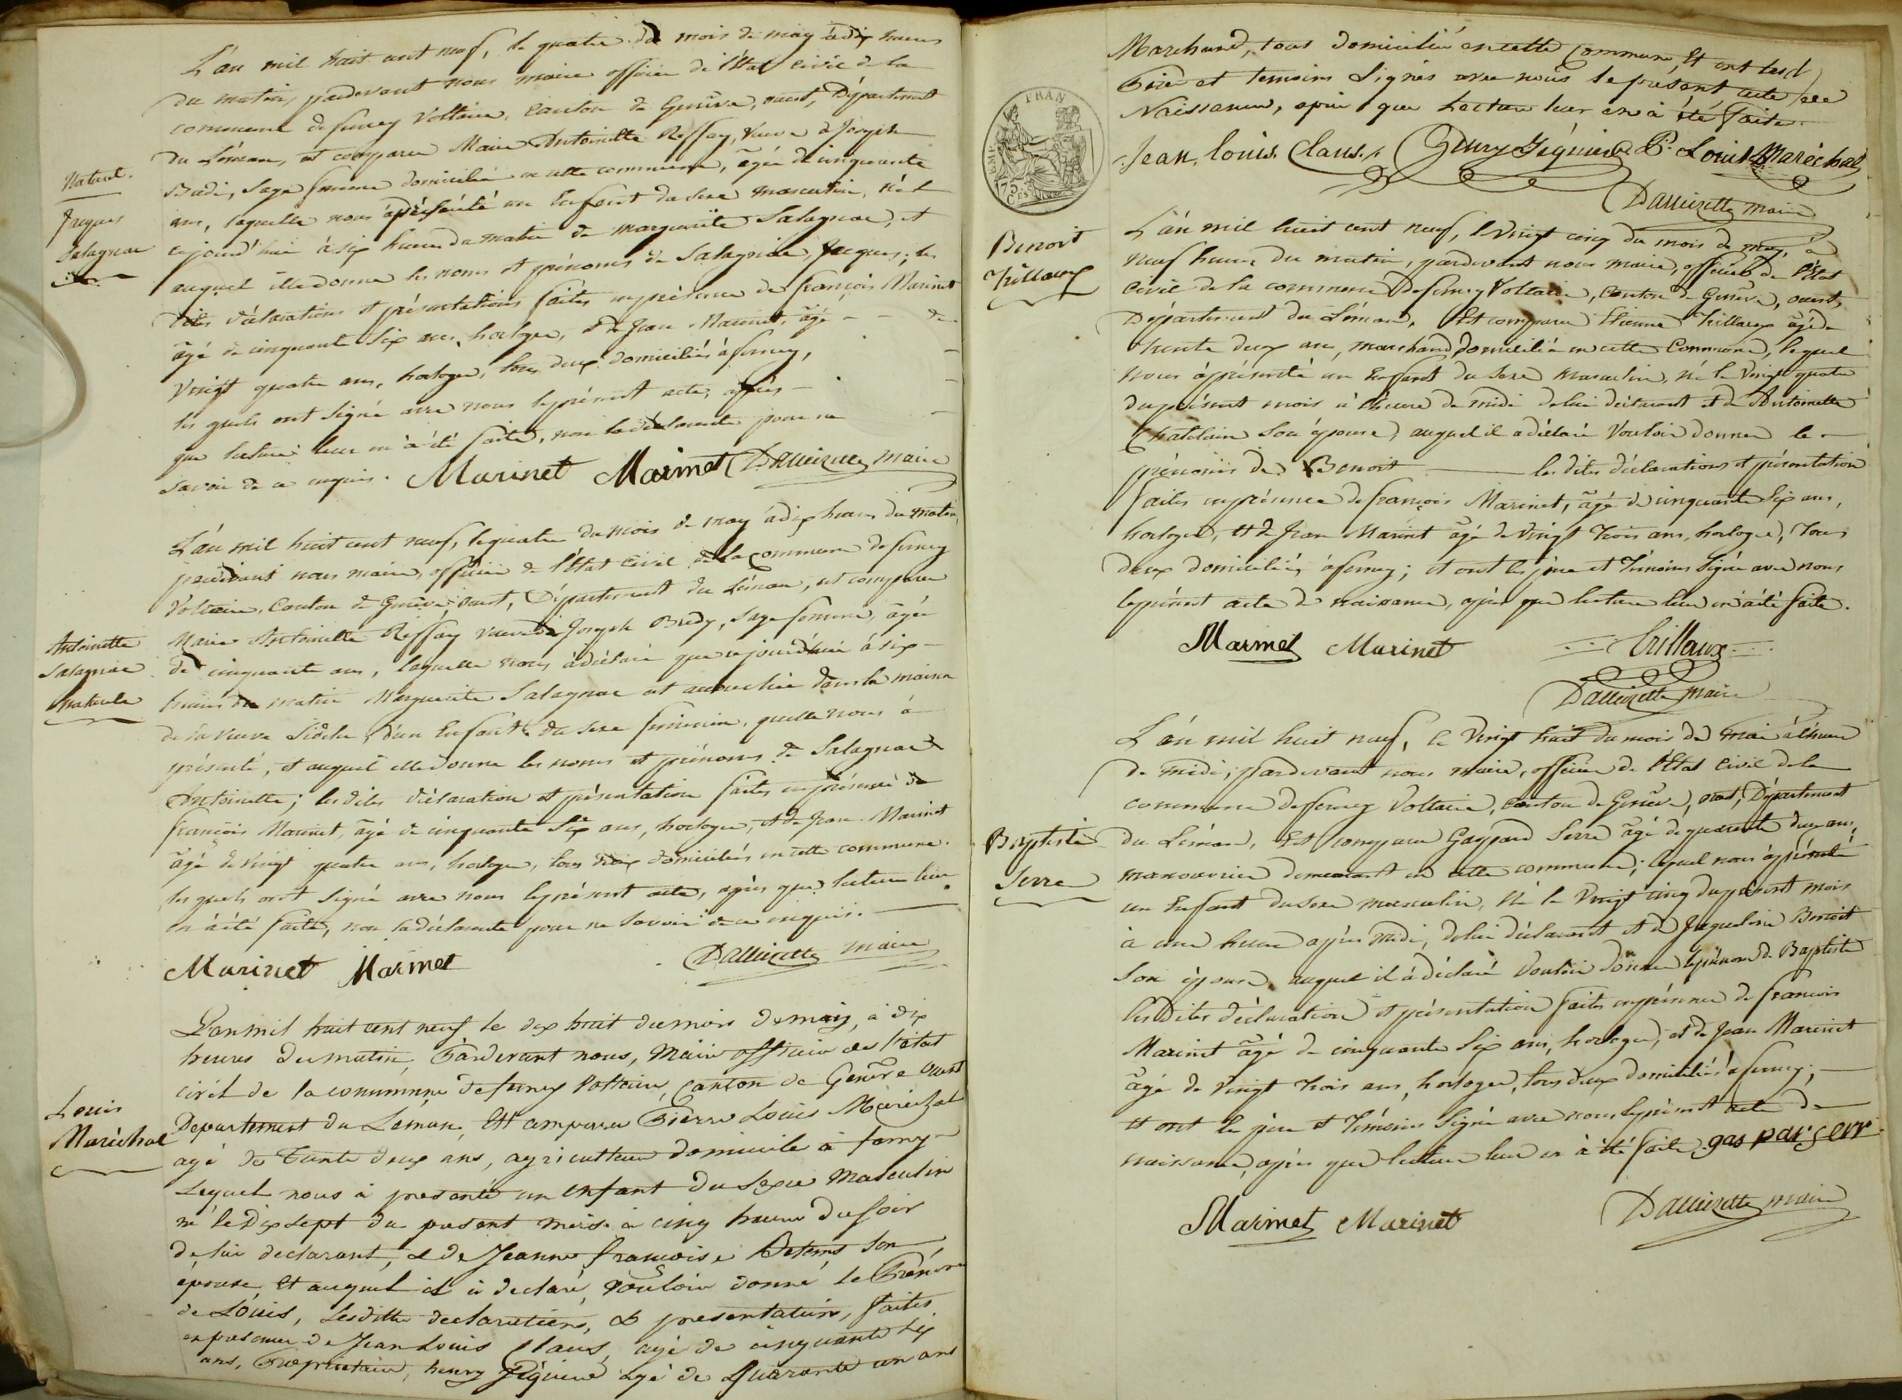 L'án mil huit cent neuf, le quatre du mois de may à dix heures
du matin, pardevant nous maire officier de l'état civil de la
commune de ferney Voltaire, Canton de Genève, ouest, Département
du Léman, est comparue Marie Antoinette Reffay, Veuve de Joseph
Budi, Sage femme domiciliée en cette commune, âgée de cinquante
ans, laquelle nous à présenté un Enfant du sexe masculin, né
cejourd'hui à six heures du matin de marguerite Salagnac, et
auquel elle donne les noms et prénoms de Salagnac, Jacques; les
dites déclarations et présentations faites en présence de françois Marinet
âgé de cinquante Six ans, horloger, et de Jean Marinet, âgé de
Vingt quatre ans, horloger, tous deux domiciliés à ferney,
les quels ont signé avec nous le présent acte, après
que lecture leur en à été faite, non la déclarante pour ne
savoir de ce enquis. Marinet Marinet Dallizette maire
Naturel.
Jacques
Salagnac
L'án mil huit cent neuf, le quatre du mois de may à dix heures du matin,
pardevant nous maire, officier de l'État civil de la commune de ferney
Voltaire, Canton de Genève, ouest, Département du Léman, est comparue
Marie Antoinette Reffay veuve de Joseph Budy, Sage femme, âgée
de cinquante ans, laquelle nous à déclaré que cejourd'hui à six
heures du matin Marguerite Salagnac est accouchée dans la maison
de la Veuve d'un Enfant du sexe féminin, quelle nous à
présenté, et auquel elle donne les noms et prénoms de Salagnac
Antoinette; les dites déclaration et présentation faites en présence de
françois Marinet, âgé de cinquante Six ans, horloger, et de Jean Marinet
âgé de vingt quatre ans, horloger, tous deux domiciliés en cette commune.
les quels ont signé avec nous le présent acte, après que lecture leur
en à été faite, non la déclarante pour ne savoir de ce enquis.
Marinet Marinet Dallizette maire
Antoinette
Salagnac
naturele
L'an mil huit cent neuf le dix huit du mois de may, à dix
heures du matin, Pardevant nous, Maire officier de l'état
civil de la commune de ferney Voltaire, Canton de Genève ouest
Departement du Leman, Est comparu Pierre Louis Maréchal
agé de Trente deux ans, agriculteur domicilié à ferney
Lequel nous à presenté un enfant du Sexe Masculin
né le Dix sept du present mois à cinq heures du soir
de lui declarant, & de Jeanne françoise Betems, Son
épouse, Et auquel il à declaré, vouloir donné le Prénom
de Louis, Lesditte declarations, & presentation, faites
en presence de Jean Louis Claus, agé de cinquante six
ans, Propriétaire, henry Péquin agé de Quarante un ans
Louis
Maréchal
Marchand, tous domicilié en cette Commune, Et ont les d
Pére et temoins Signés avec nous le present acte de
Naissance, aprés que lecture leur en à été faite.
Jean, louis Claus. Louis Maréchal
Dallizette maire
L'án mil huit cent neuf, le Vingt cinq du mois de may, à
neuf heures du matin, pardevant nous maire, officier de l'État
civil de la commune de ferney Voltaire, Canton de Genève, ouest,
Département du Léman, Est comparu Etienne Trillaux âgé de
trente deux ans, marchand, domicilié en cette Commune, lequel
nous à présenté un Enfant du Sexe masculin, né le Vingt quatre
du présent mois à l'heure de midi de lui déclarant et de Antoinette
Chatelain son épouse, auquel il a déclaré Vouloir donner le
prénoms de Benoit les dites déclarations et présentation
faites en présence de françois Marinet, âgé de cinquante Six ans,
horloger, et de Jean Marinet âgé de Vingt trois ans, horloger, tous
deux domiciliés à ferney; et ont les père et témoins signé avec nous
le présent acte de naissance, après que lecture leur en à été faite.
Marinet Marinet Trillaux
Dallizette maire
Benoit
Trillaux
L'án mil huit neuf, le Vingt huit du mois de mai à l'heure
de midi; pardevant nous maire, officier de l'État civil de la
commune de ferney Voltaire, canton de Genève, ouest, Département
du Léman, Est comparu Gaspard Serre âgé de quarente deux ans,
manouvrier demeurant en cette commune; lequel nous à présenté
un Enfant du sexe masculin, Né le Vingt cinq du présent mois
à une heure après midi, de lui déclarant et de Jaqueline Benoit
son épouse auquel il à déclaré Vouloir donner le prénom de Baptiste
les Dites déclaration et présentation faites en présence de francois
Marinet âgé de cinquante Six ans, horloger, et de Jean Marinet
âgé de Vingt trois ans, horloger, tous deux domiciliés à ferney;
et ont les père et témoins signé avec nous le présent acte de
naissance, après que lecture leur en à été faite. gas par serr
Marinet Marinet Dallizette maire
Baptiste
Serre